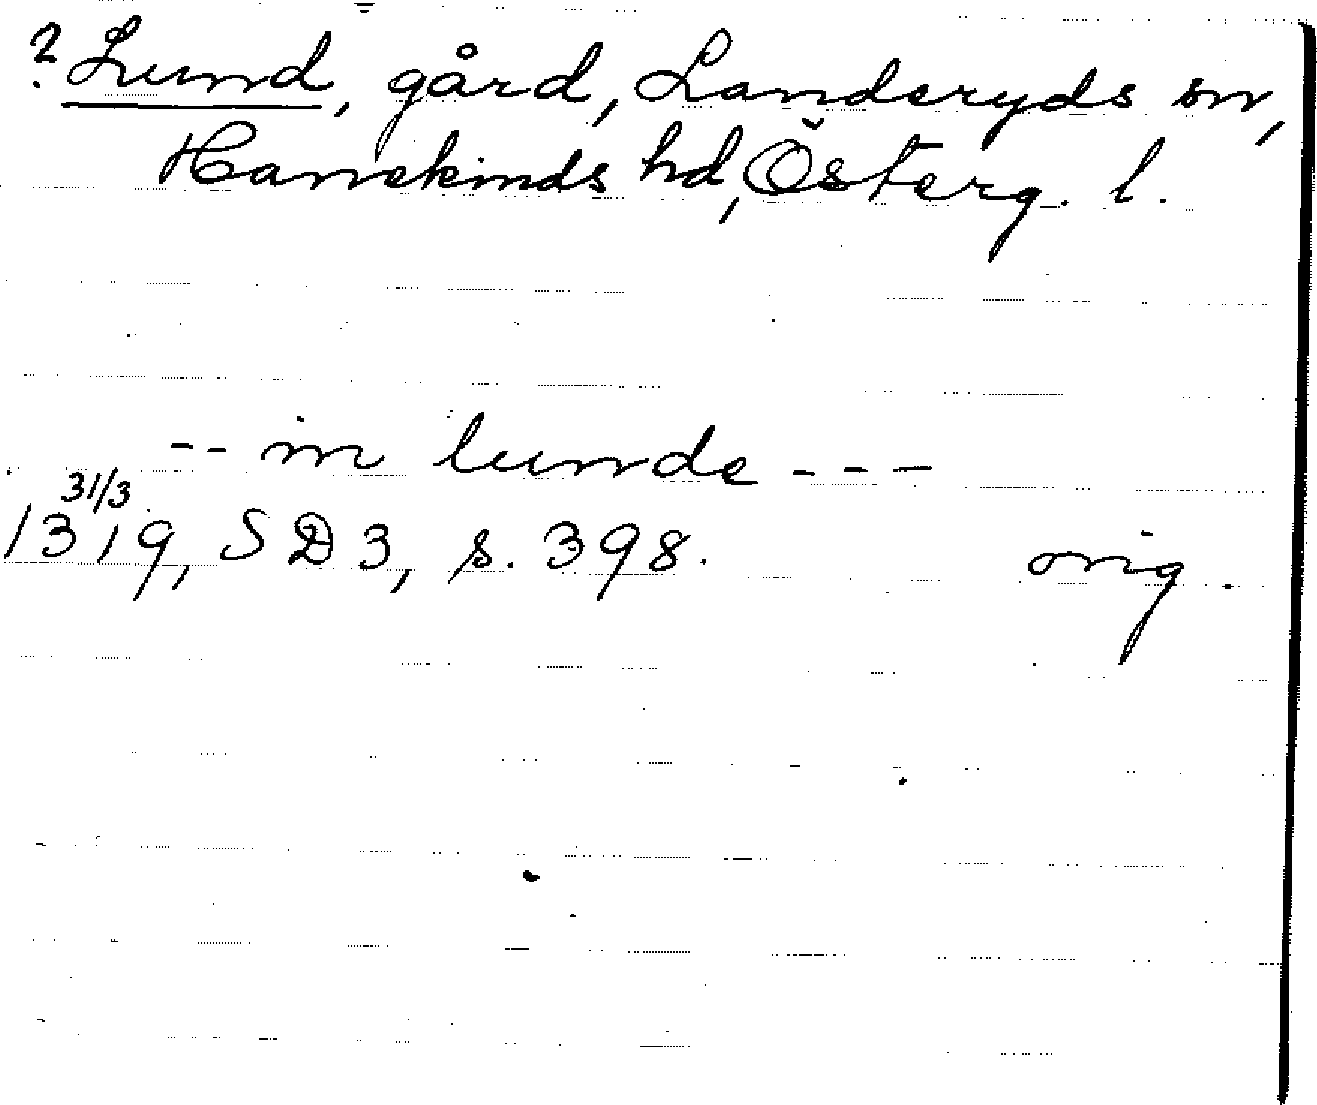 ? Lund, gård, Landeryds sn,
Hanekinds hd, Österg. l.
-- in lunde ---
31/3
1319, SD 3, s. 398. orig.